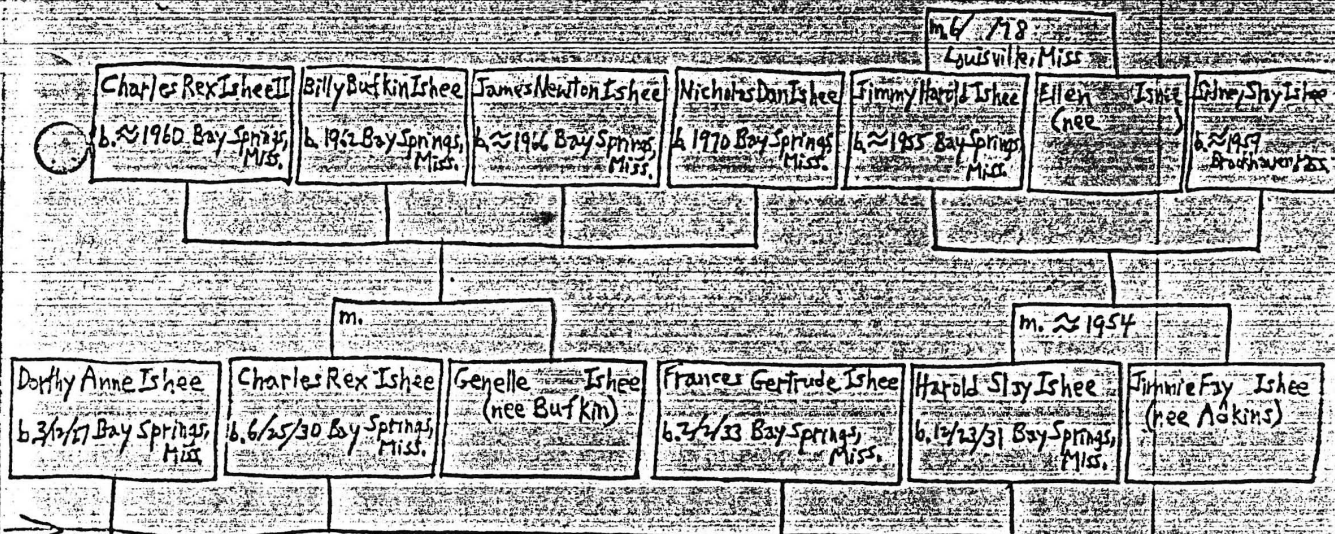 m. 6/ /78
Louisville, Miss
Charles Rex Ishee II
b. ≈ 1960 Bay Springs,
Miss.
Billy Bufkin Ishee
b. 1962 Bay Springs,
Miss.
James Newton Ishee
b. ≈ 1966 Bay Springs,
Miss.
Nicholas Dan Ishee
b. 1970 Bay Springs
Miss.
Jimmy Harold Ishee
b. ≈ 1955 Bay Springs,
Miss.
Ellen Ishee
(nee )
Sidney Slay Ishee
b. ≈ 1959
Brookhaven, Miss.
m.
m. ≈ 1954
Dorthy Anne Ishee
b. 3/12/27 Bay Springs,
Miss
Charles Rex Ishee
b. 6/25/30 Bay Springs,
Miss.
Genelle Ishee
(nee Bufkin)
Frances Gertrude Ishee
b. 2/2/33 Bay Springs,
Miss.
Harold Slay Ishee
b. 12/23/31 Bay Springs,
Miss.
Jimmie Fay Ishee
(nee Adkins)